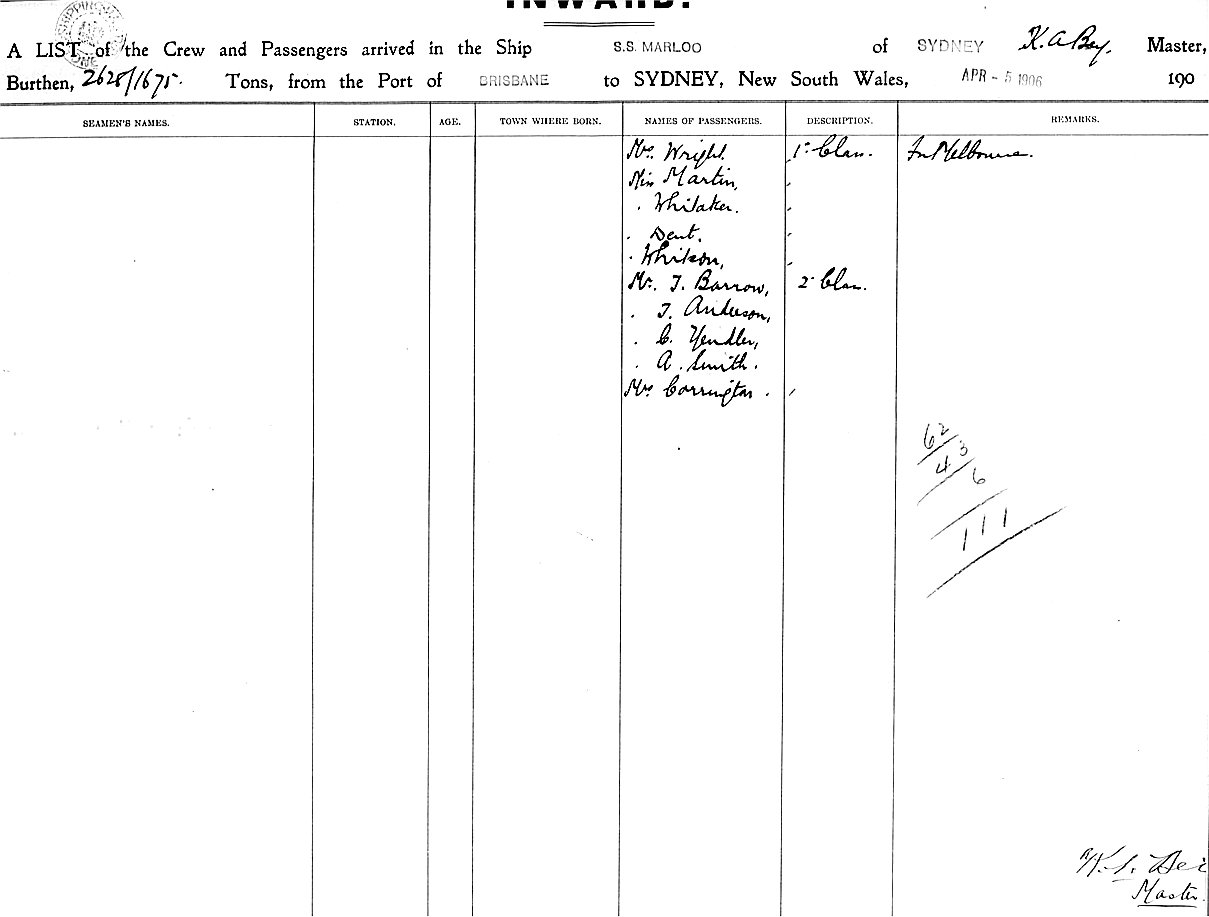 INWARD.
A LIST of the Crew and Passengers arrived in the Ship S.S. MARLOO of SYDNEY Master,
Burthen, 2628/1675. Tons, from the Port of BRISBANE to SYDNEY, New South Wales, APR - 5 1906 190
SEAMEN'S NAMES. STATION. AGE. TOWN WHERE BORN. NAMES OF PASSENGERS. DESCRIPTION. REMARKS.
Mrs. Wright. 1st Class. Fm Melbourne.
Miss Martin,
. Whitaker.
. Dent.
. Whitson,
Mr. T. Barrow, 2nd Class.
. T. Anderson,
. C. Yendler,
. A. Smith.
Mrs Corrington.
62
43
6
111
Master.